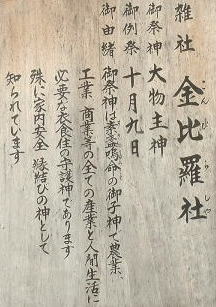 雑社 金比羅社
こんぴらしゃ
御祭神 大物主神
御例祭 十月九日
御由緒 御祭神は素盞鳴命の御子神で農業、
工業 商業等の全ての産業と人間生活に
必要な衣食住の守護神であります
殊に家内安全 縁結びの神として
知られています